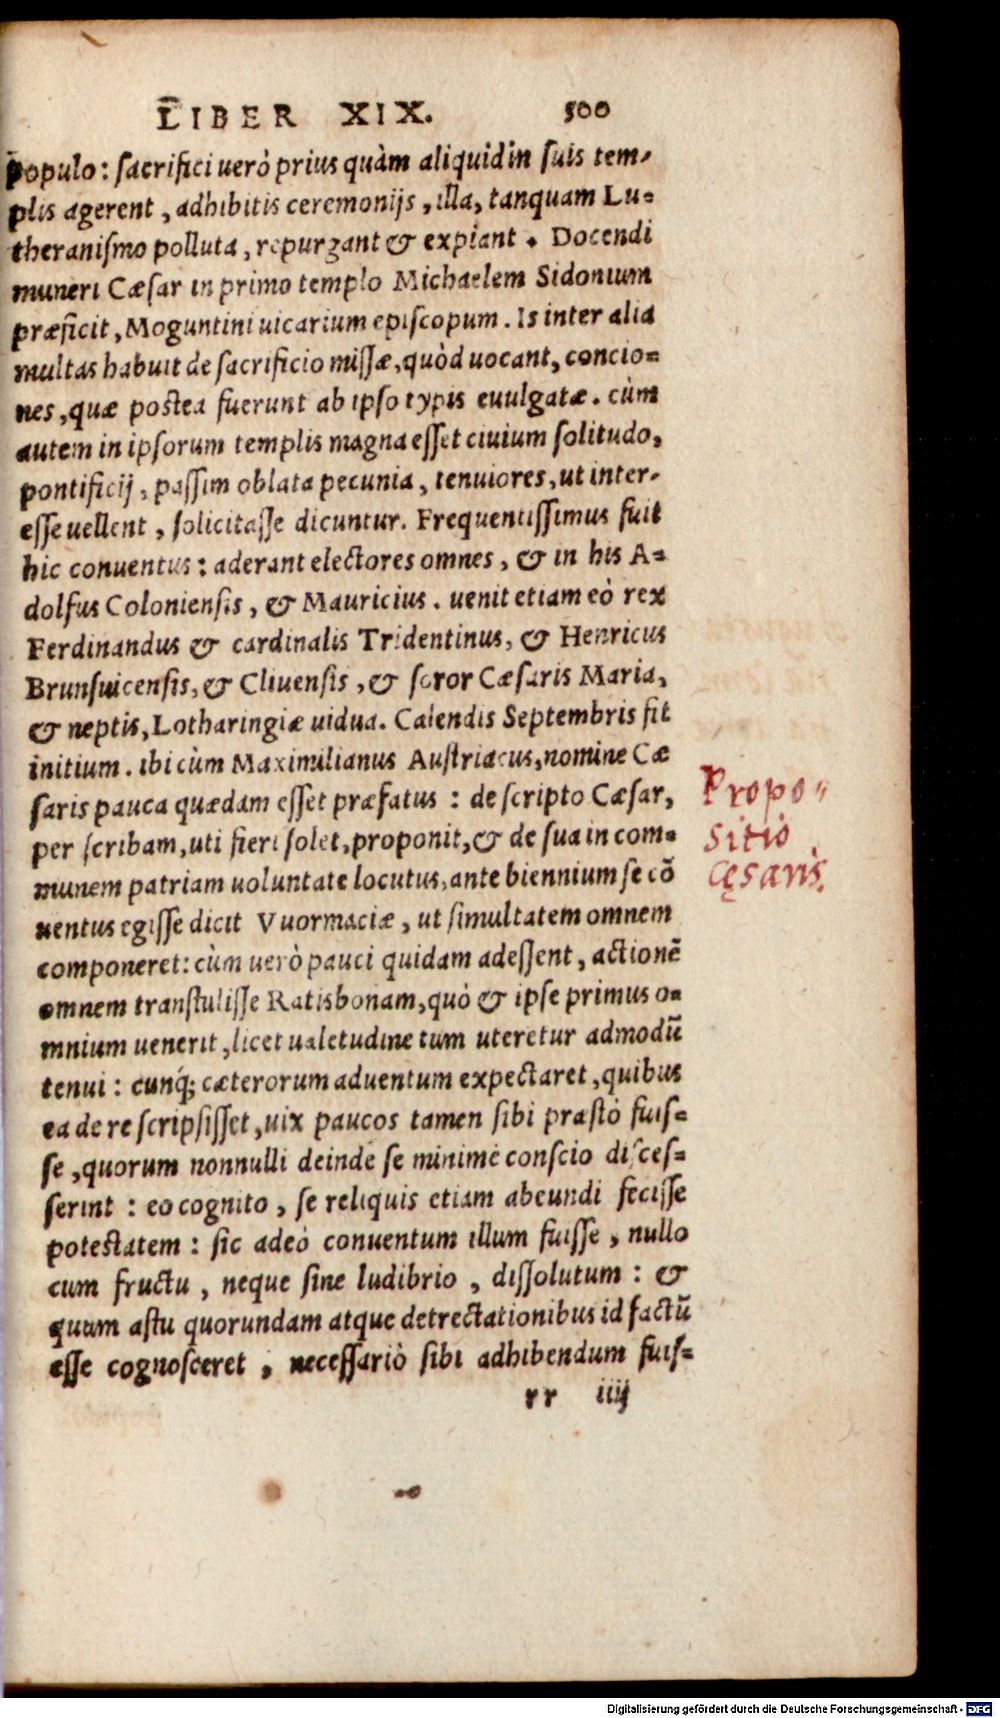 LIBER XIX. 500
populo: sacrifici uerò prius quàm aliquid in suis tem-
plis agerent, adhibitis ceremonijs, illa, tanquam Lu-
theranismo polluta, repurgant & expiant. Docendi
muneri Cæsar in primo templo Michaelem Sidonium
præficit, Moguntini uicarium episcopum. Is inter alia
multas habuit de sacrificio missæ, quòd uocant, concio-
nes, quæ postea fuerunt ab ipso typis euulgatæ. cùm
autem in ipsorum templis magna esset ciuium solitudo,
pontificij, passim oblata pecunia, tenuiores, ut inter-
esse uellent, solicitasse dicuntur. Frequentissimus fuit
hic conuentus: aderant electores omnes, & in his A-
dolfus Coloniensis, & Mauricius. uenit etiam eò rex
Ferdinandus & cardinalis Tridentinus, & Henricus
Brunsuicensis, & Cliuensis, & soror Cæsaris Maria,
& neptis, Lotharingiæ uidua. Calendis Septembris fit
initium. ibi cùm Maximilianus Austriacus, nomine Cæ
saris pauca quædam esset præfatus: de scripto Cæsar,
per scribam, uti fieri solet, proponit, & de sua in com-
munem patriam uoluntate locutus, ante biennium se cō
uentus egisse dicit Vuormaciæ, ut simultatem omnem
componeret: cùm uerò pauci quidam adessent, actionē
omnem transtulisse Ratisbonam, quò & ipse primus o-
mnium uenerit, licet ualetudine tum uteretur admodū
tenui: cunq́; cæterorum aduentum expectaret, quibus
ea de re scripsisset, uix paucos tamen sibi præstò fuis-
se, quorum nonnulli deinde se minimè conscio disces-
serint: eo cognito, se reliquis etiam abeundi fecisse
potestatem: sic adeò conuentum illum fuisse, nullo
cum fructu, neque sine ludibrio, dissolutum: &
quum astu quorundam atque detrectationibus id factū
esse cognosceret, necessariò sibi adhibendum fuis-
rr iiij
Propo-
sitio
cęsaris.
Digitalisierung gefördert durch die Deutsche Forschungsgemeinschaft - DFG